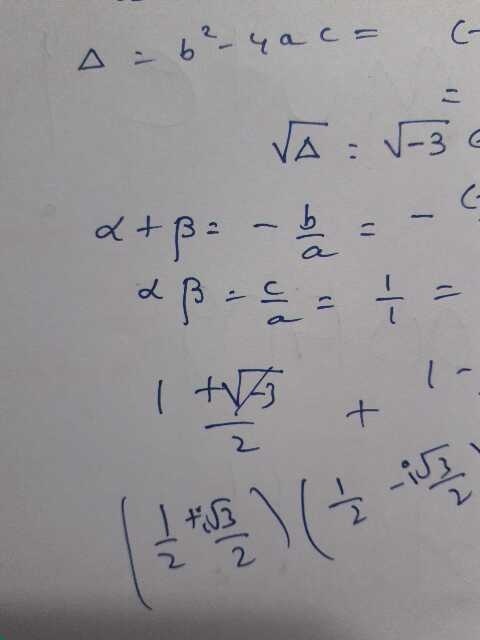 Δ = b² - 4ac = (-
=
√Δ = √-3
α + β = - b/a = - (-
αβ = c/a = 1/1 =
1 + √-3 / 2 + 1 -
(1/2 + i√3/2) (1/2 - i√3/2)